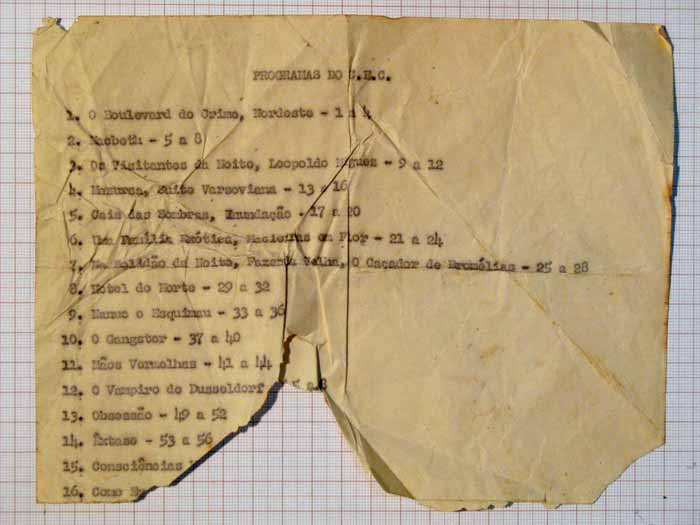 PROGRAMAS DO C.E.C.
1. O Boulevard do Crime, Nordeste - 1 a 4
2. Macbeth - 5 a 8
3. Os Visitantes da Noite, Leopoldo Miguez - 9 a 12
4. Mazurca, Suite Varsoviana - 13 a 16
5. Cais das Sombras, Inundação - 17 a 20
6. Uma Família Exótica, Macieiras em Flor - 21 a 24
7. Na Solidão da Noite, Fazenda Velha, O Caçador de Bromélias - 25 a 28
8. Hotel do Norte - 29 a 32
9. Nanuc o Esquimau - 33 a 36
10. O Gangster - 37 a 40
11. Mãos Vermelhas - 41 a 44
12. O Vampiro de Dusseldorf 5 a 8
13. Obsessão - 49 a 52
14. Êxtase - 53 a 56
15. Consciências
16. Como